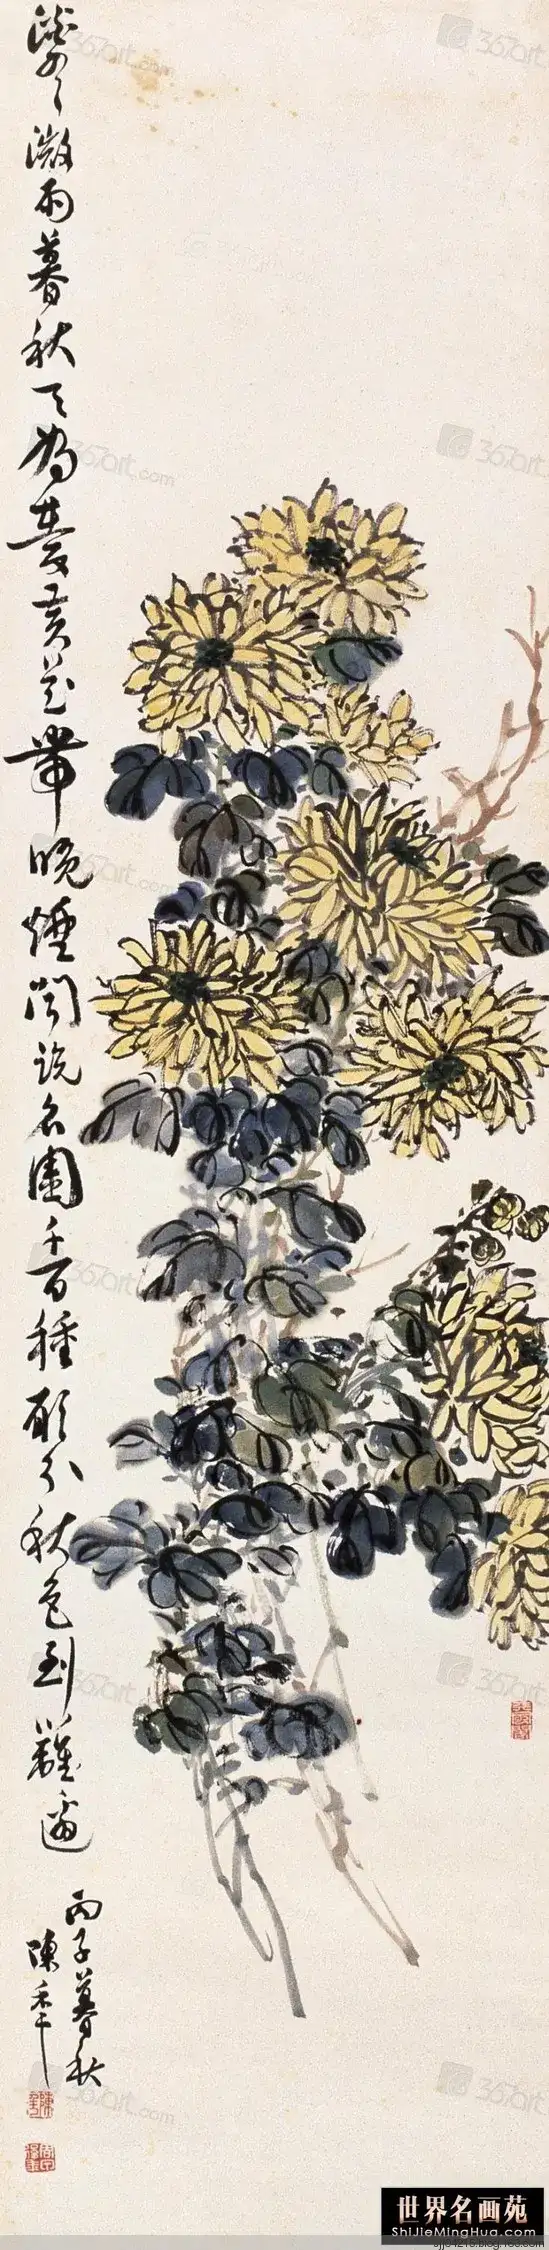 濛濛微雨暮秋天为爱黄花带晚烟闻说名園千百種願分秋色到籬邊
丙子暮秋
陳年
367art.com
世界名画苑
ShiJieMingHua.com